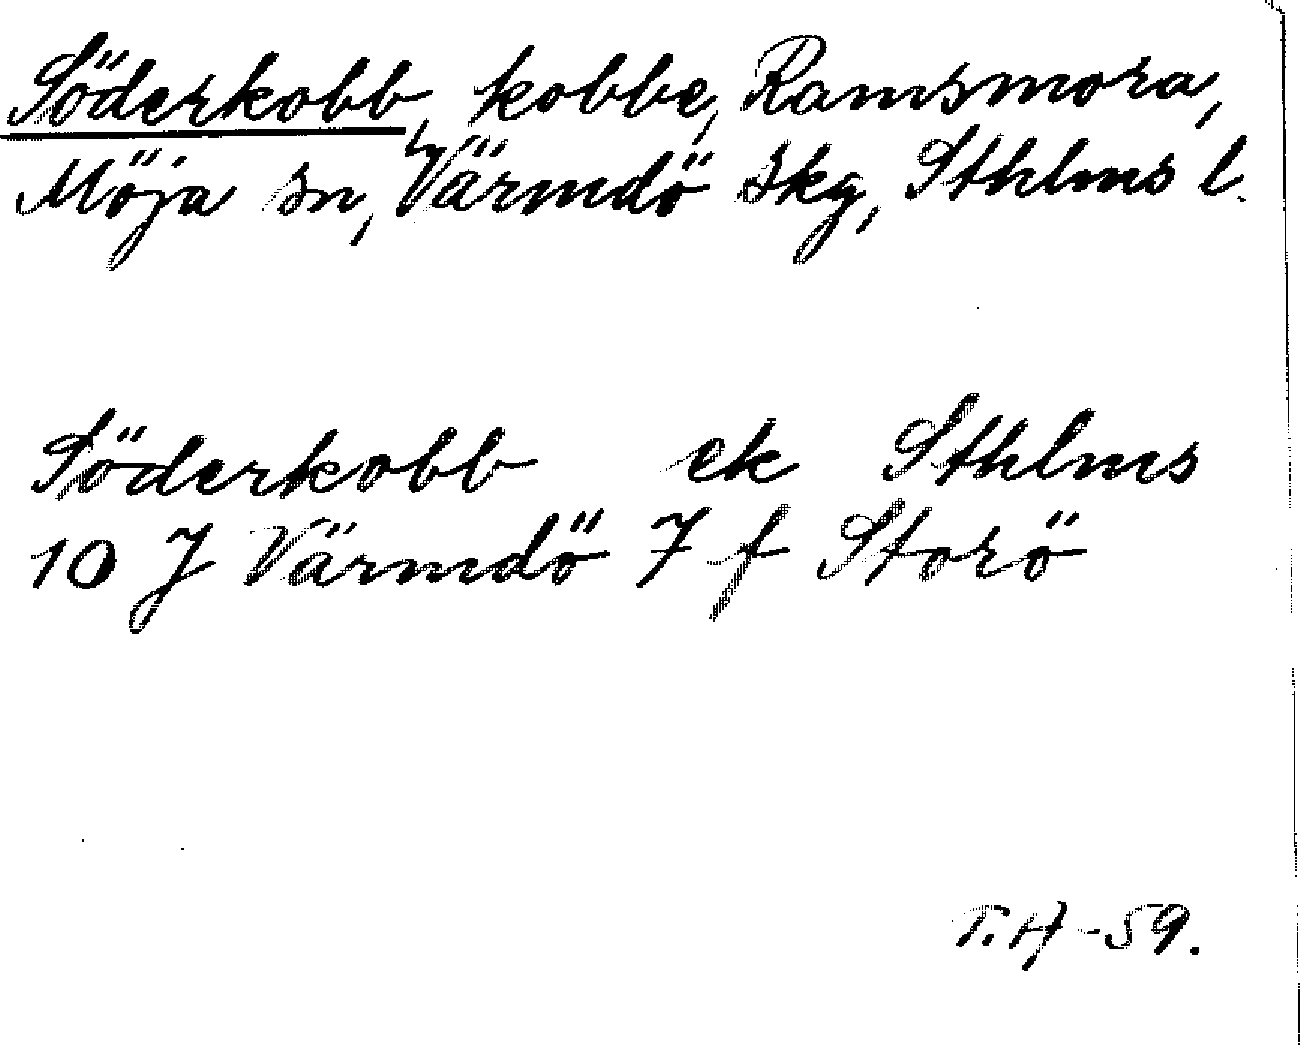 Söderkobb, kobbe, Ramsmora,
Möja sn, Värmdö skg, Sthlms l.
Söderkobb ek Sthlms
10 J Värmdö 7 f Storö
T.H -59.